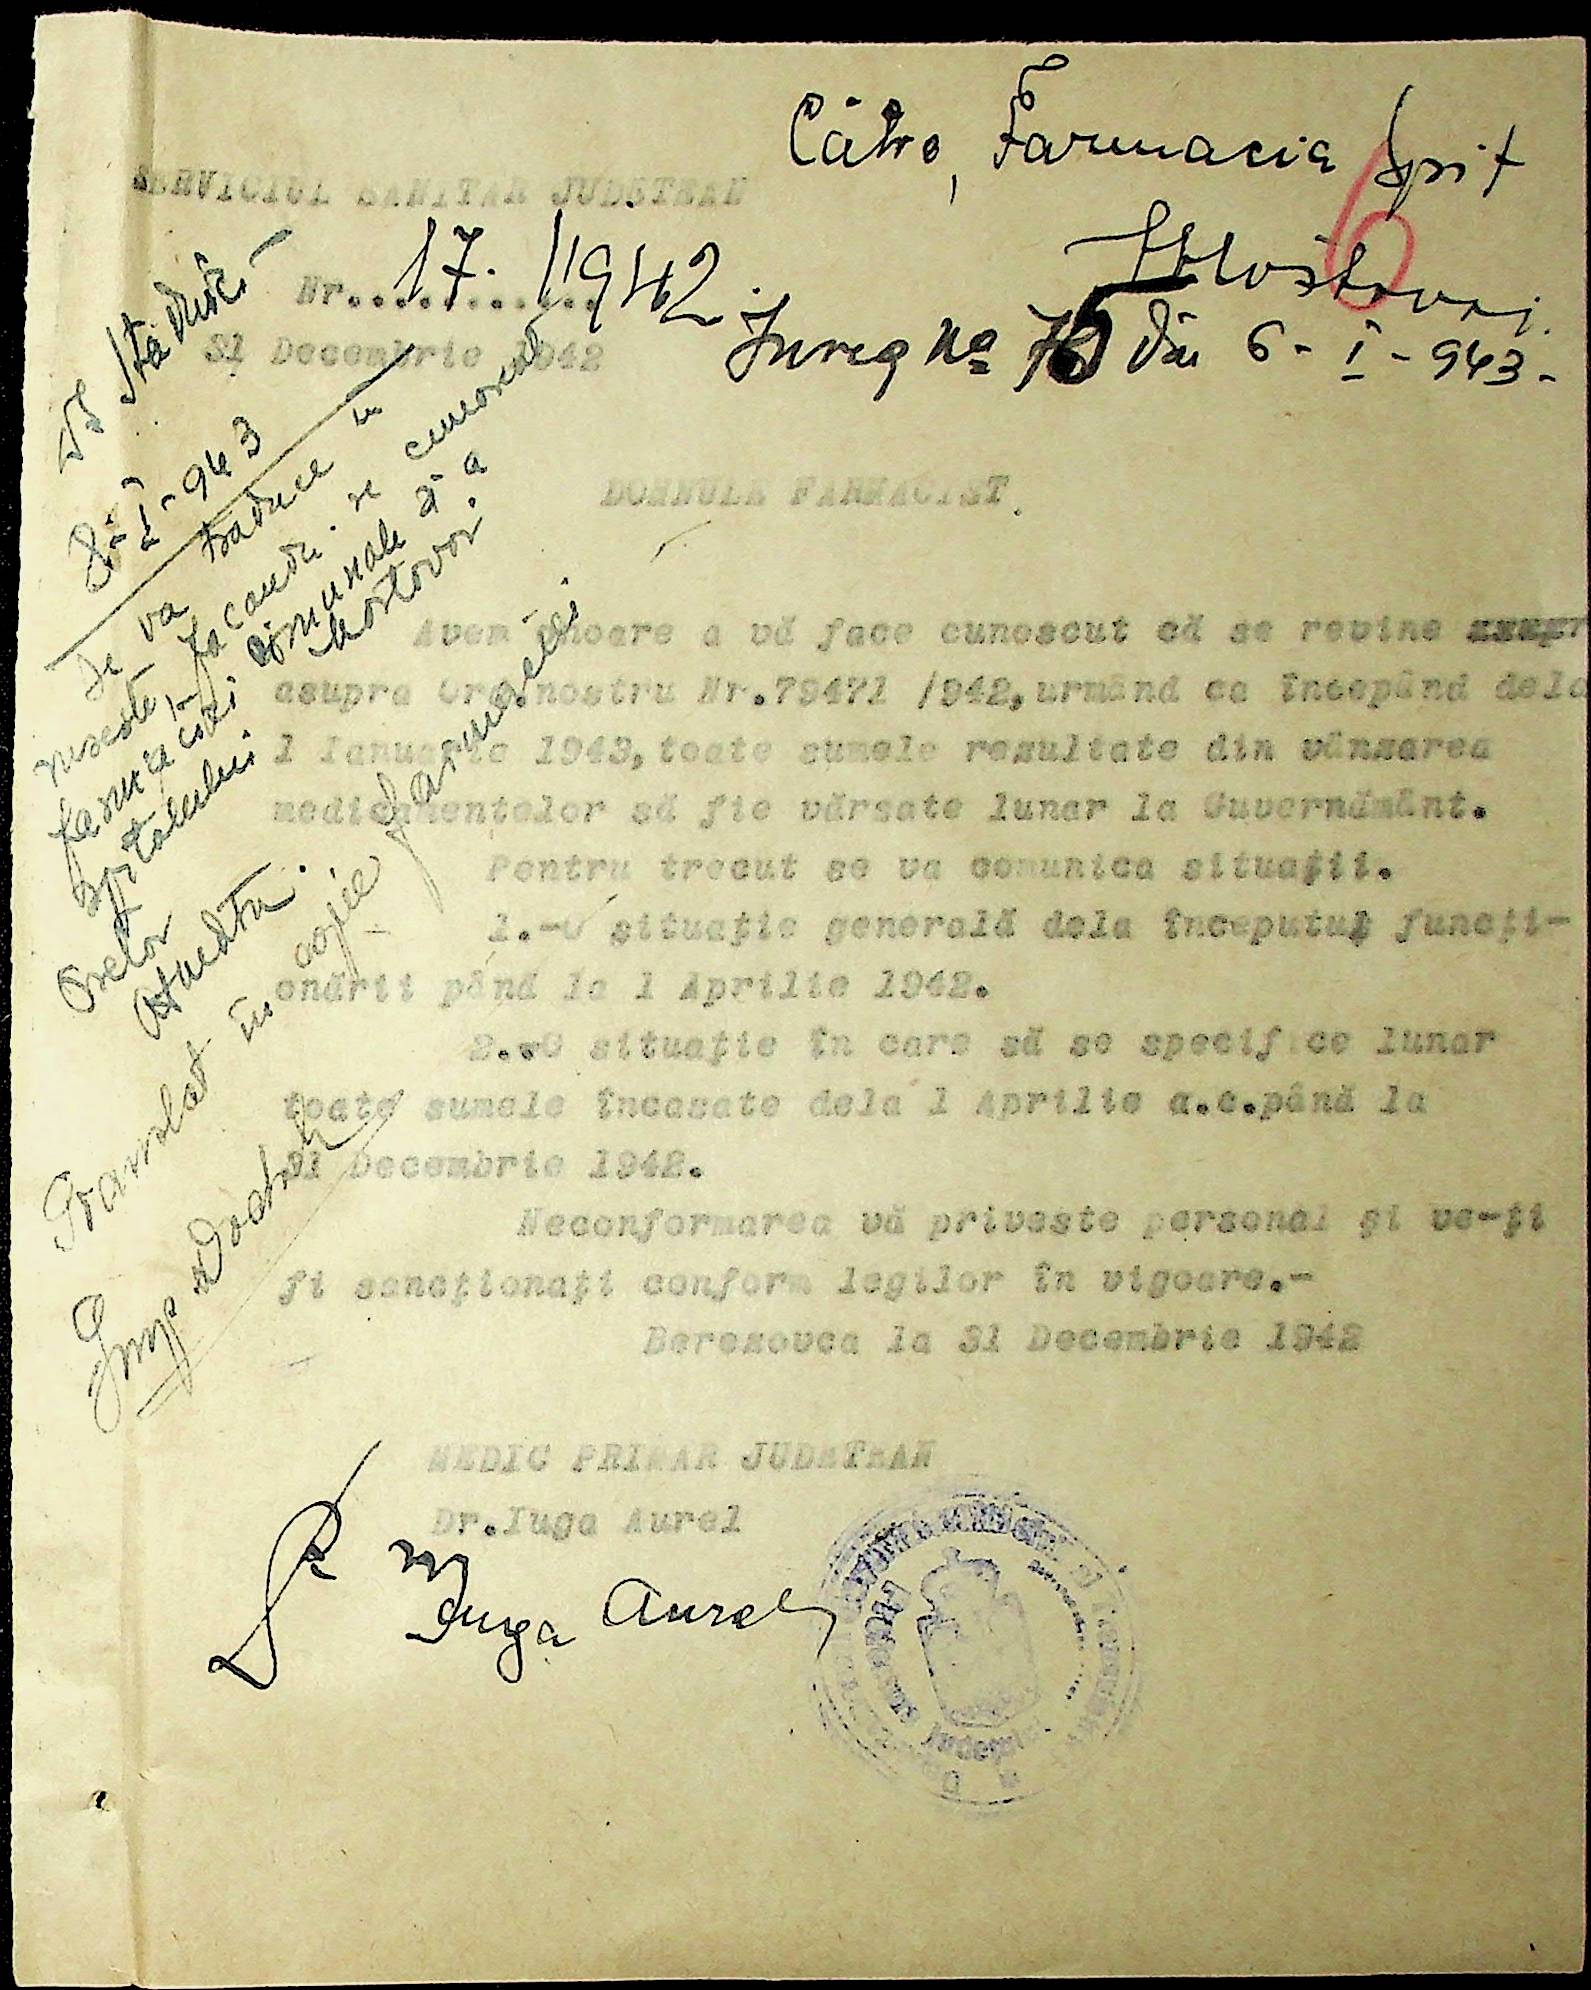 Către, Farmacia Spit
Mostovoi.
6
SERVICIUL SANITAR JUDETEAN
Nr. 17. /1942
31 Decembrie 1942
Inreg No 76 din 6 - I - 943 -
8 - I - 943
Se va traduce in
ruseste
farmaciei
spitalului
Mostovoi.
Translat în copie farmaciei
DOMNULE FARMACIST.
Avem onoare a vă face cunoscut că se revine
asupra Ord.nostru Nr.79471 /942,urmând ca începând dela
1 Ianuarie 1943,toate sumele rezultate din vânzarea
medicamentelor să fie vărsate lunar la Guvernământ.
Pentru trecut se va comunica situații.
1.-O situație generală dela începutul funcți-
onării până la 1 Aprilie 1942.
2.-O situație în care să se specifice lunar
toate sumele încasate dela 1 Aprilie a.c.până la
31 Decembrie 1942.
Neconformarea vă priveste personal și ve-ți
fi sancționați conform legilor în vigoare.-
Berezovca la 31 Decembrie 1942
MEDIC PRIMAR JUDETEAN
Dr.Iuga Aurel
Iuga Aurel